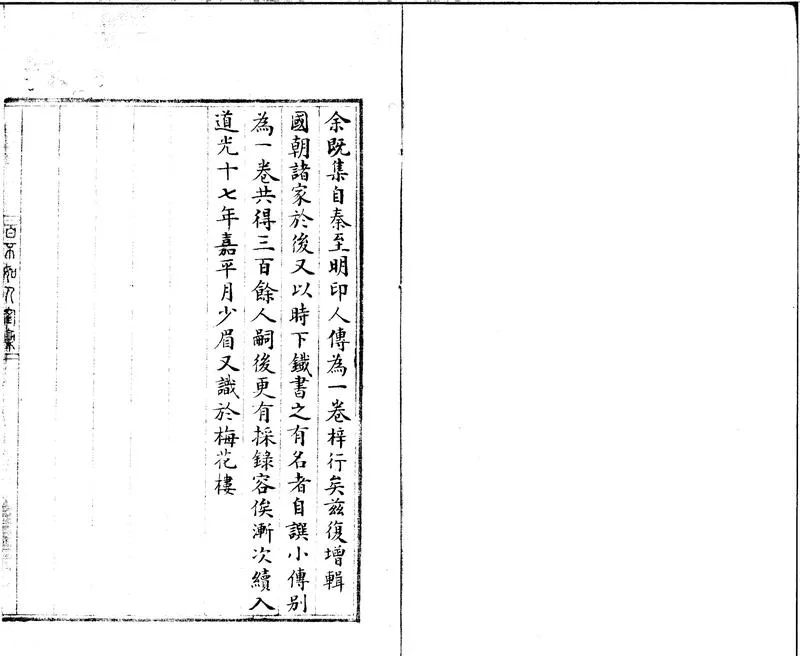 余既集自秦至明印人傳為一卷梓行矣茲復增輯
國朝諸家於後又以時下鐵書之有名者自譔小傳别
為一卷共得三百餘人嗣後更有採錄容俟漸次續入
道光十七年嘉平月少眉又識於梅花樓
百不如人